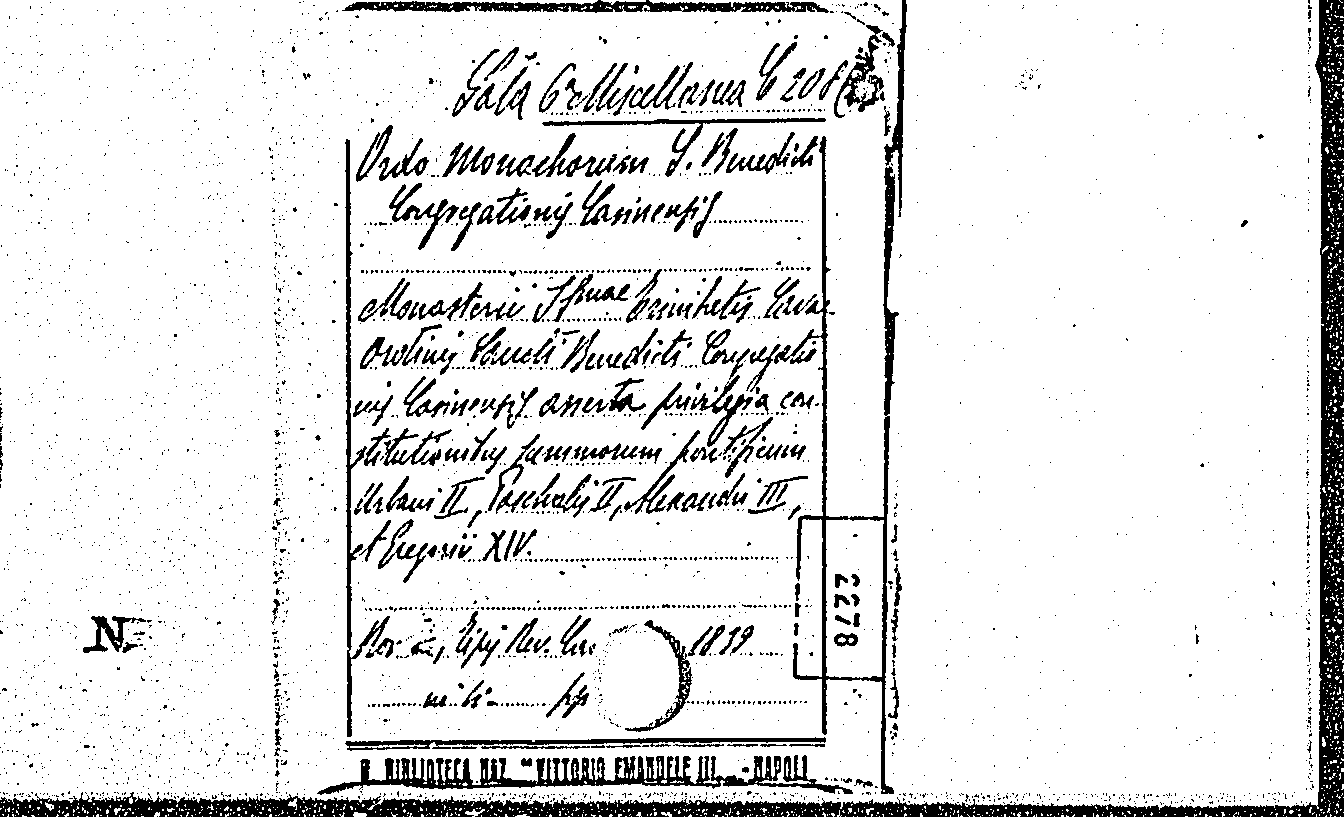 Sala 6ª Miscellanea C 208(
Ordo Monachorum S. Benedicti
Congregationis Casinensis
Monasterii SSmae Trinitatis Cavae
Ordinis Sancti Benedicti Congregatio
nis Casinensis asserta privilegia con
stitutionibus summorum pontificum
Urbani II, Paschalis II, Alexandri III,
et Gregorii XIV.
Typis Rev. 1839
2278
N
R. BIBLIOTECA NAZ. "VITTORIO EMANUELE III. - NAPOLI